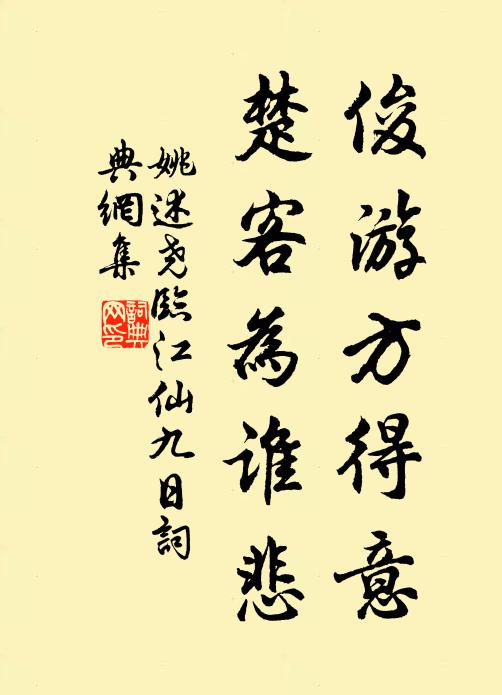 俊游方得意
楚客為谁悲
姚述尧臨江仙九日詞
典網集
詞典
网印